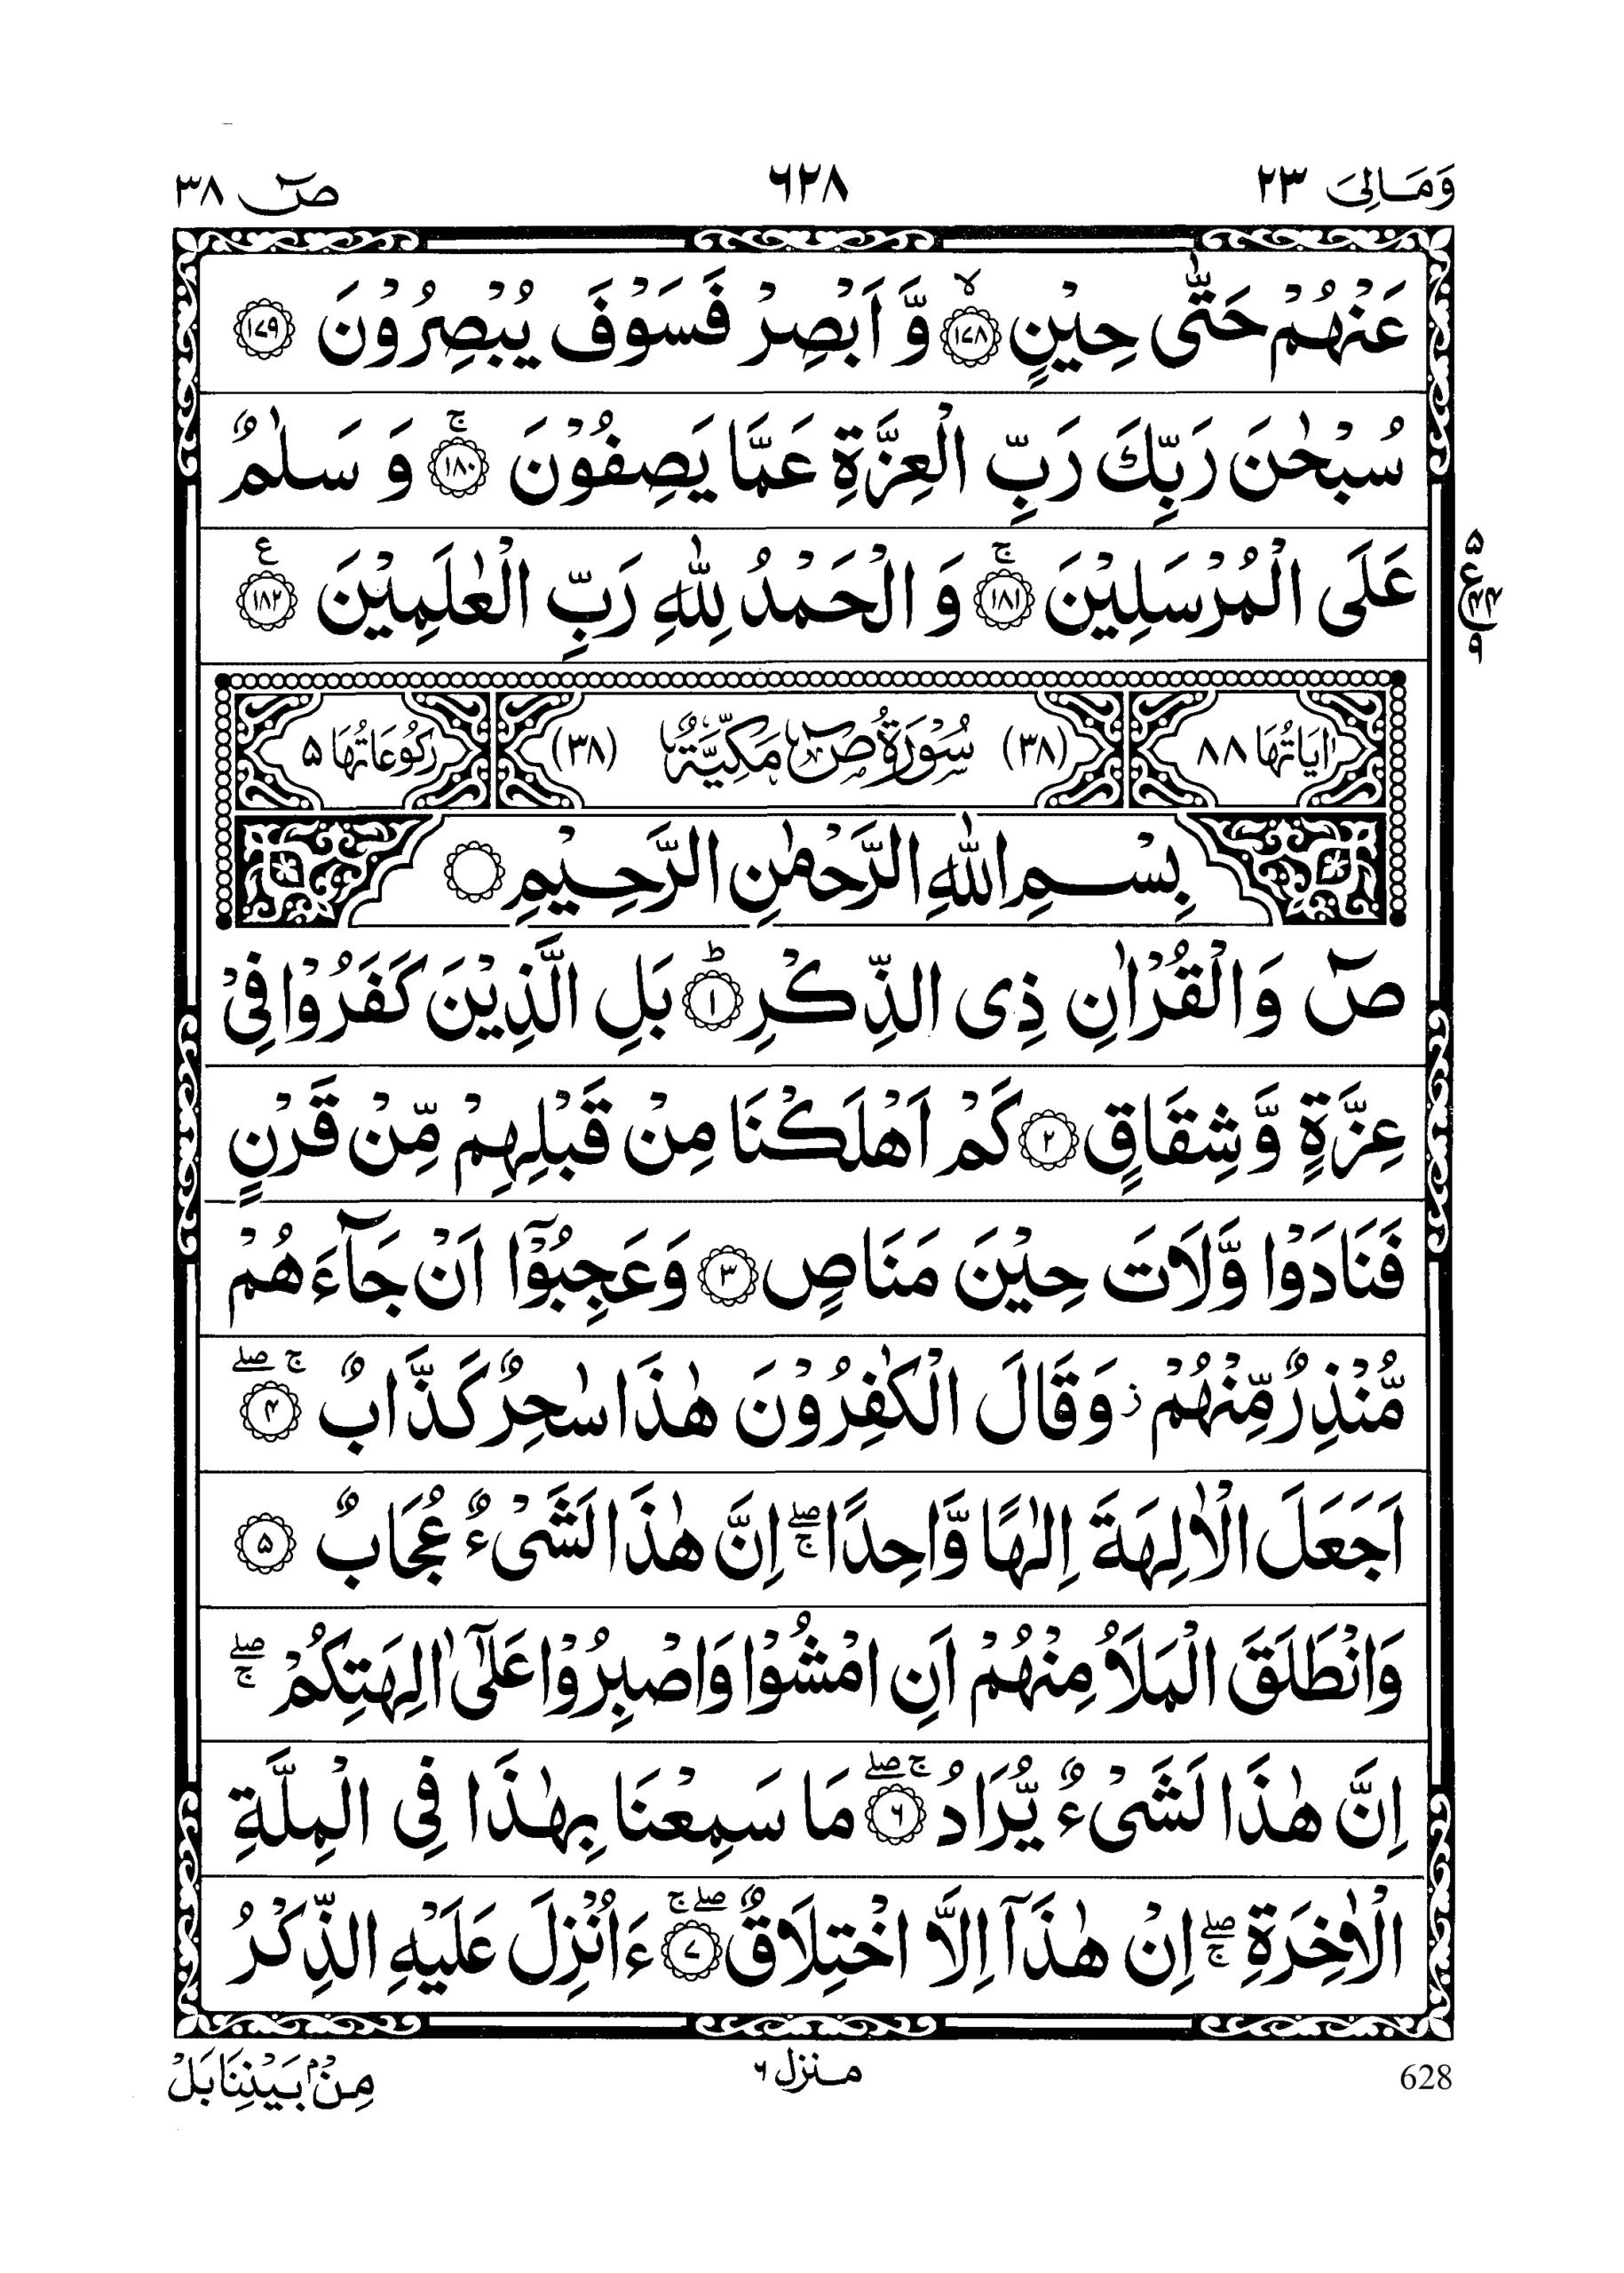 وَمَالِیَ ٢٣ ٦٢٨ صٓ ٣٨
عَنْهُمْ حَتّٰى حِيْنٍ ﴿١٧٨﴾ۙ وَّ اَبْصِرْ فَسَوْفَ يُبْصِرُوْنَ ﴿١٧٩﴾
سُبْحٰنَ رَبِّكَ رَبِّ الْعِزَّةِ عَمَّا يَصِفُوْنَ ﴿١٨٠﴾ۚ وَ سَلٰمٌ
عَلَى الْمُرْسَلِيْنَ ﴿١٨١﴾ۚ وَ الْحَمْدُ لِلّٰهِ رَبِّ الْعٰلَمِيْنَ ﴿١٨٢﴾ ع
٥ ع ٤٤ ٩
اٰيَاتُهَا ٨٨ (٣٨) سُوْرَةُ صٓ مَكِّيَّةٌ (٣٨) رُكُوْعَاتُهَا ٥
بِسْمِ اللّٰهِ الرَّحْمٰنِ الرَّحِيْمِ
صٓ وَالْقُرْاٰنِ ذِى الذِّكْرِ ﴿١﴾ؕ بَلِ الَّذِيْنَ كَفَرُوْا فِىْ
عِزَّةٍ وَّ شِقَاقٍ ﴿٢﴾ كَمْ اَهْلَكْنَا مِنْ قَبْلِهِمْ مِّنْ قَرْنٍ
فَنَادَوْا وَّلَاتَ حِيْنَ مَنَاصٍ ﴿٣﴾ وَعَجِبُوْٓا اَنْ جَآءَهُمْ
مُّنْذِرٌ مِّنْهُمْ ز وَقَالَ الْكٰفِرُوْنَ هٰذَا سٰحِرٌ كَذَّابٌ ﴿٤﴾ۚۖ
اَجَعَلَ الْاٰلِهَةَ اِلٰهًا وَّاحِدًا ۖۚ اِنَّ هٰذَا لَشَىْءٌ عُجَابٌ ﴿٥﴾
وَانْطَلَقَ الْمَلَاُ مِنْهُمْ اَنِ امْشُوْا وَاصْبِرُوْا عَلٰٓى اٰلِهَتِكُمْ ۖۚ
اِنَّ هٰذَا لَشَىْءٌ يُّرَادُ ﴿٦﴾ۚۖ مَا سَمِعْنَا بِهٰذَا فِى الْمِلَّةِ
الْاٰخِرَةِ ۖۚ اِنْ هٰذَآ اِلَّا اخْتِلَاقٌ ﴿٧﴾ۖۚ ءَاُنْزِلَ عَلَيْهِ الذِّكْرُ
628 مـنزل ٦ مِنْۢ بَيْنِنَا بَلْ